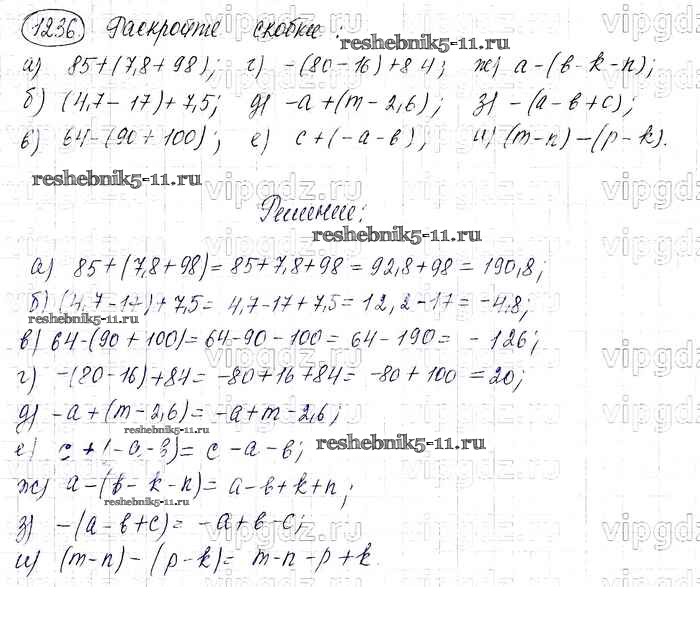 1236 Раскройте скобки:
reshebnik5-11.ru
а) 85+(7,8+98); г) -(80-16)+84; ж) a-(b-k-n);
б) (4,7-17)+7,5; д) -a+(m-2,6); з) -(a-b+c);
в) 64-(90+100); е) c+(-a-b); и) (m-n)-(p-k).
reshebnik5-11.ru
vipgdz.ru
Решение:
reshebnik5-11.ru
а) 85+(7,8+98)=85+7,8+98=92,8+98=190,8;
б) (4,7-17)+7,5=4,7-17+7,5=12,2-17=-4,8;
reshebnik5-11.ru
в) 64-(90+100)=64-90-100=64-190=-126;
г) -(80-16)+84=-80+16+84=-80+100=20;
д) -a+(m-2,6)=-a+m-2,6;
reshebnik5-11.ru
е) c+(-a-b)=c-a-b;
reshebnik5-11.ru
ж) a-(b-k-n)=a-b+k+n;
reshebnik5-11.ru
з) -(a-b+c)=-a+b-c;
и) (m-n)-(p-k)=m-n-p+k.